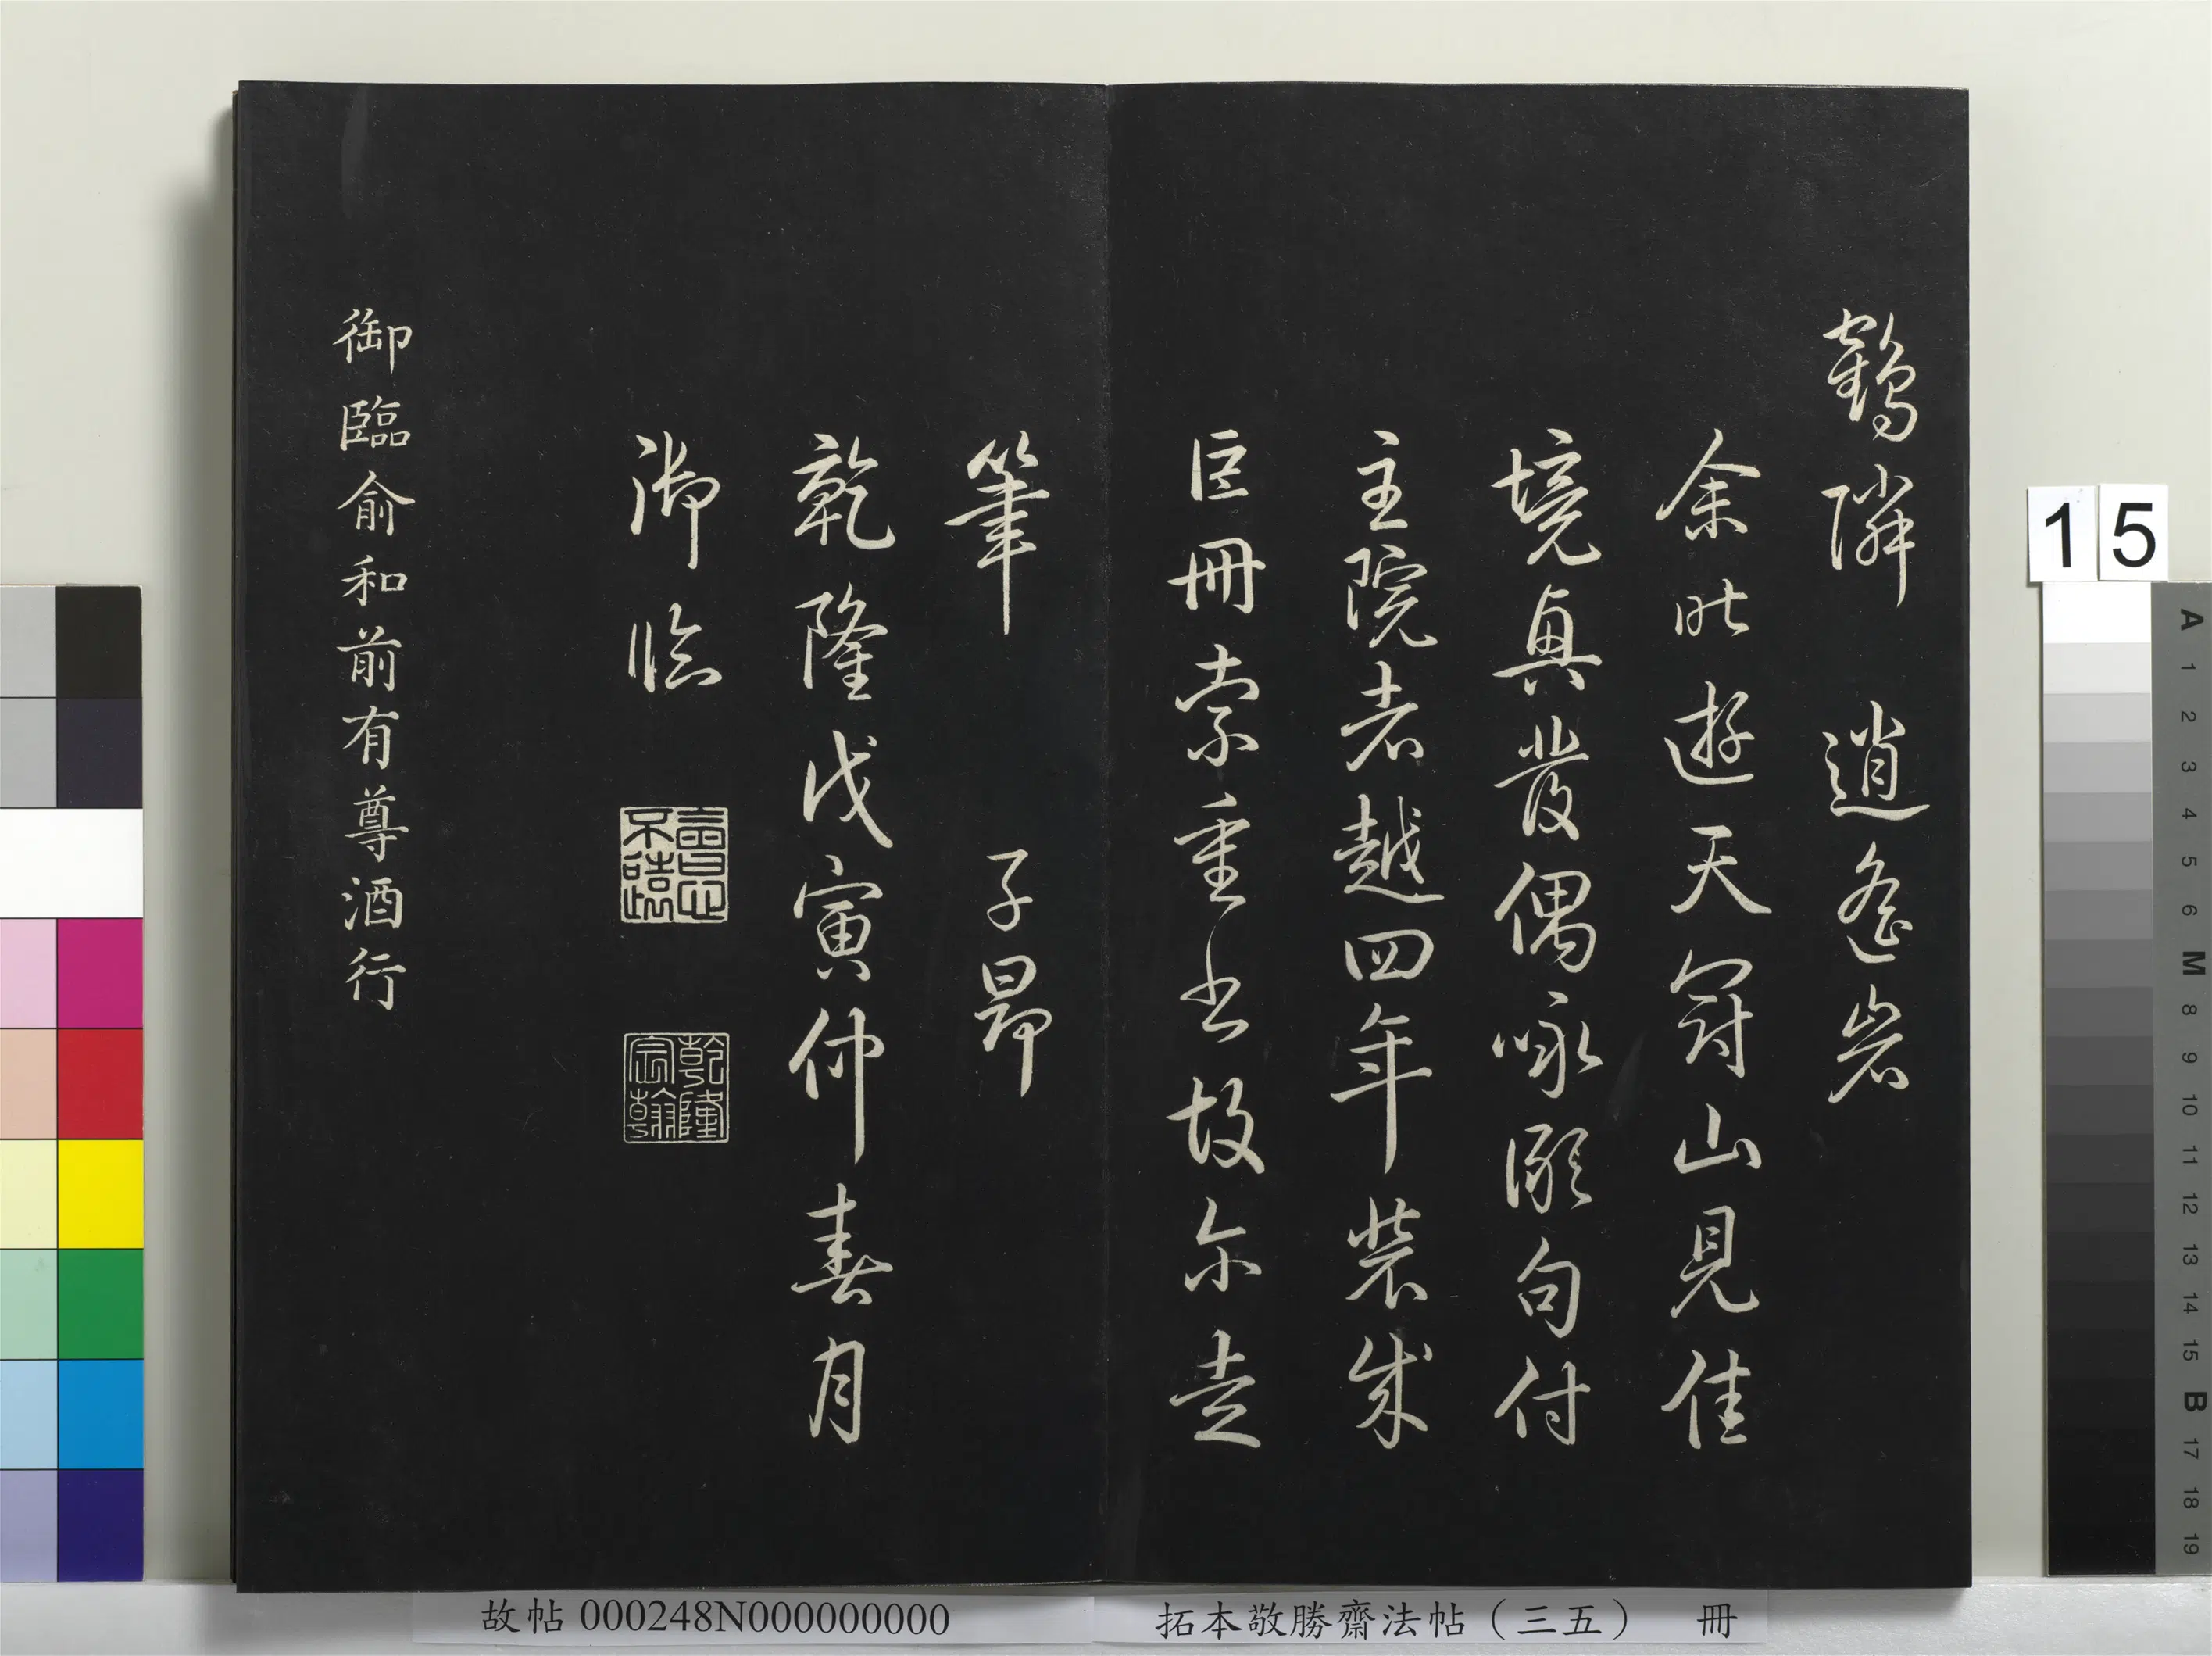 鶴隣 逍遙岩
余昨遊天冠山見佳
境興發偶咏斷句付
主院者越四年裝成
巨冊索重書故尔走
筆 子昂
乾隆戊寅仲春月
御臨
會心不遠
乾隆宸翰
御臨俞和前有尊酒行
15
A 1 2 3 4 5 6 M 8 9 10 11 12 13 14 15 B 17 18 19
故帖 000248N000000000
拓本敬勝齋法帖（三五） 冊